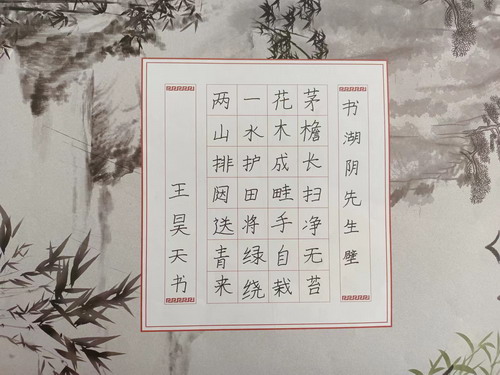 书湖阴先生壁
茅檐长扫净无苔
花木成畦手自栽
一水护田将绿绕
两山排闼送青来
王昊天书